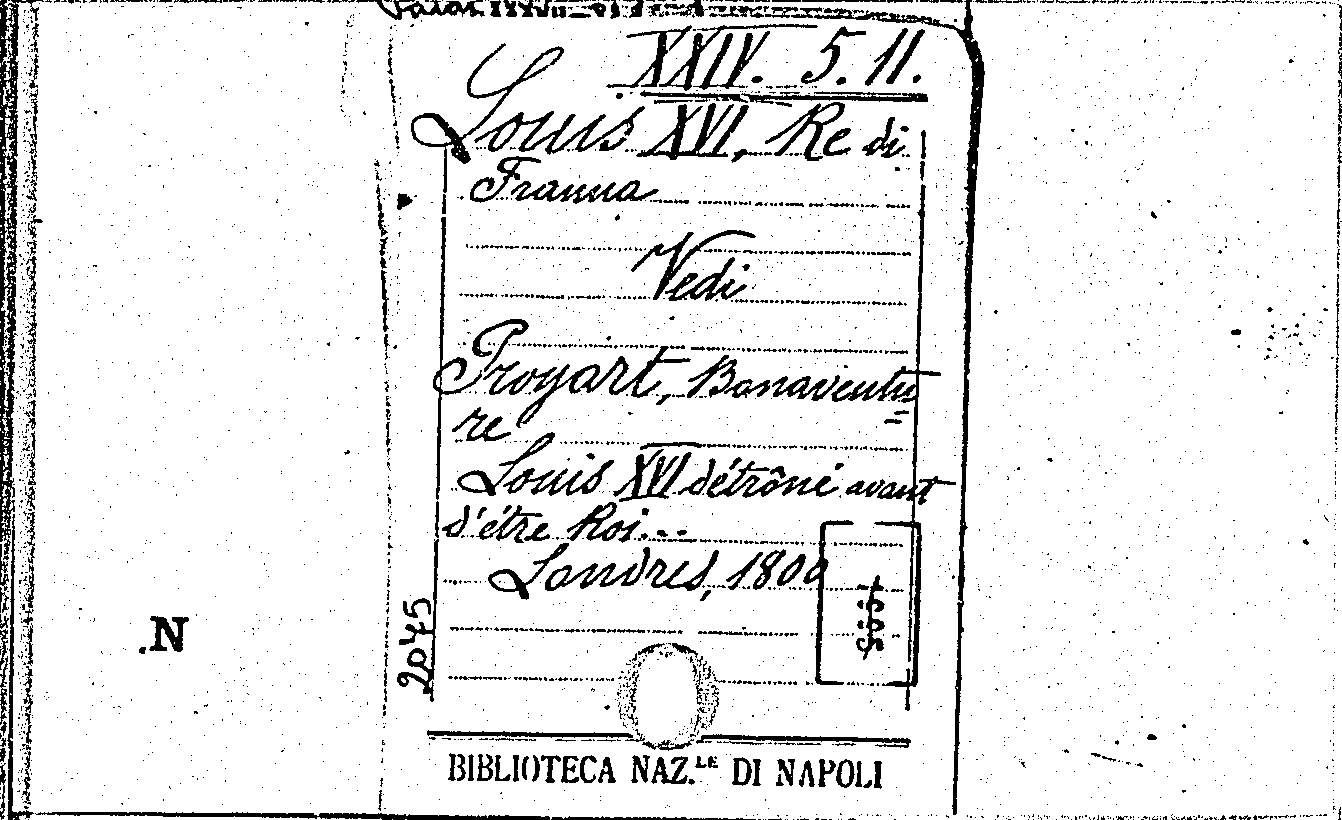 XXIV. 5. 11.
Louis XVI, Re di
Francia
Vedi
Proyart, Bonaventu
re
Louis XVI détrôné avant
d'être Roi...
Londres, 1800
2045
.N
BIBLIOTECA NAZ.LE DI NAPOLI